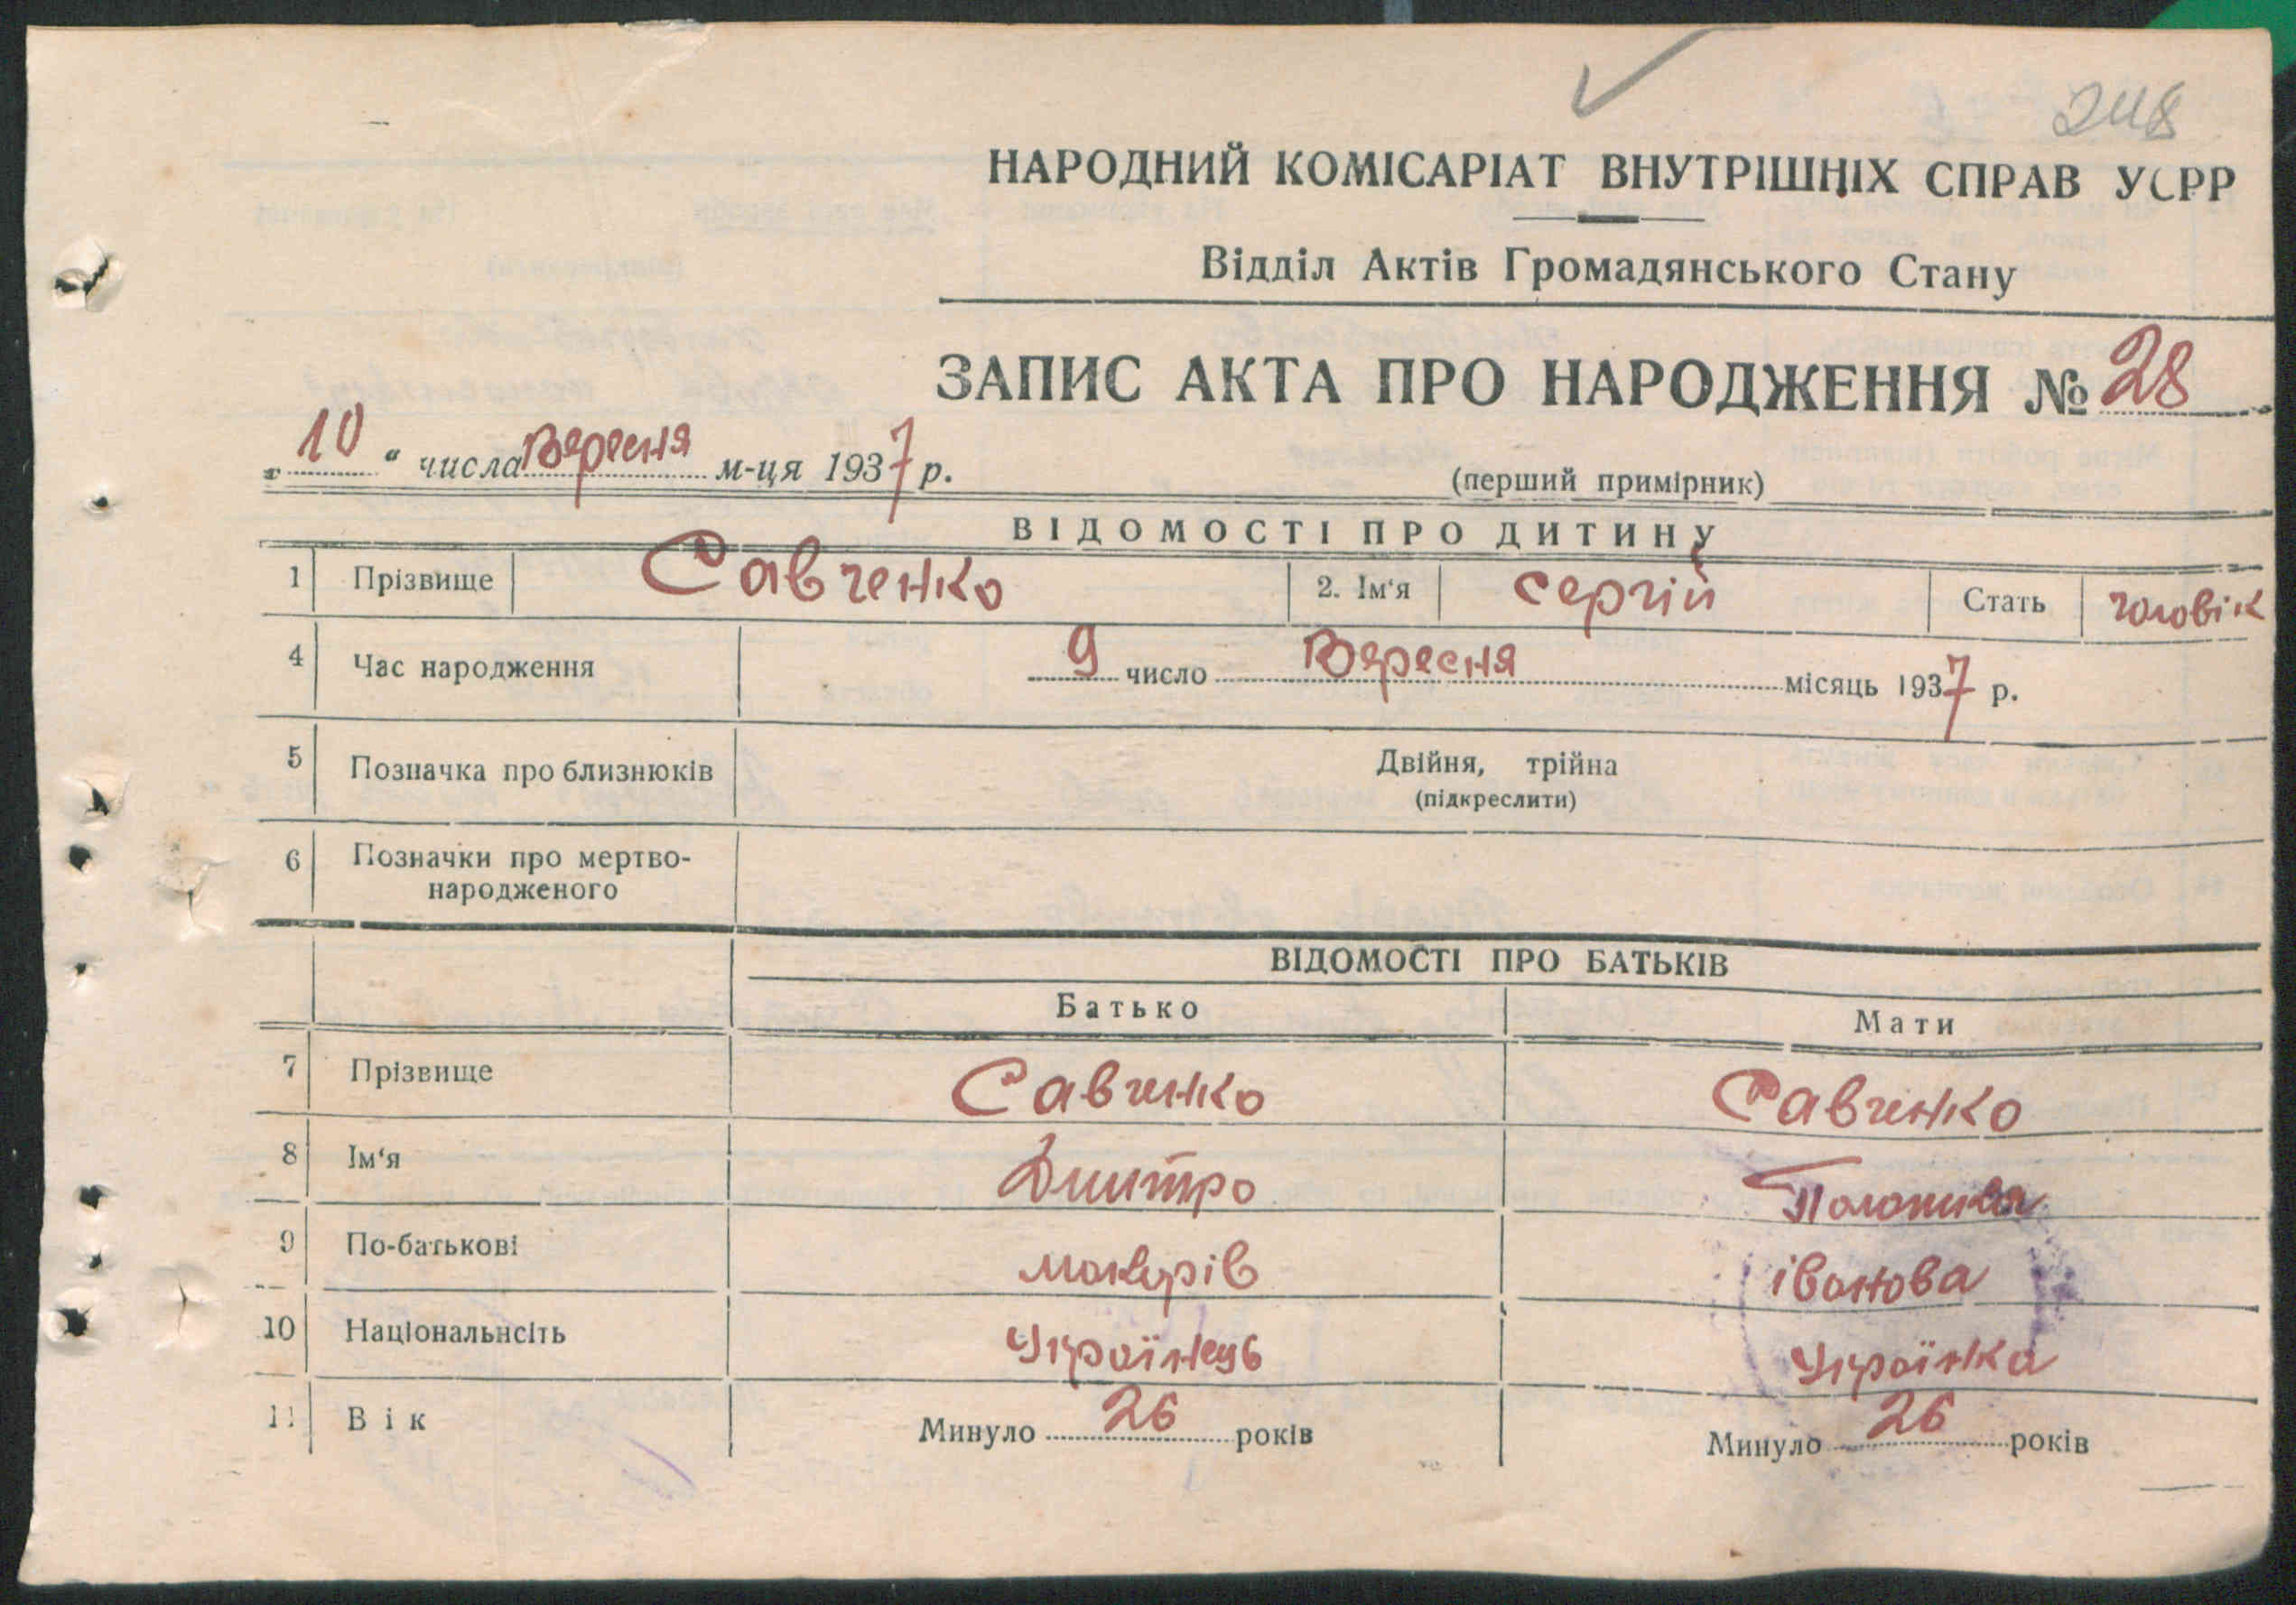 248
НАРОДНИЙ КОМІСАРІАТ ВНУТРІШНІХ СПРАВ УСРР
Відділ Актів Громадянського Стану
ЗАПИС АКТА ПРО НАРОДЖЕННЯ № 28
„ 10 “ числа Вересня м-ця 1937 р.
(перший примірник)
ВІДОМОСТІ ПРО ДИТИНУ
1 Прізвище Савченко 2. Ім'я Сергій Стать чоловік
4 Час народження 9 число Вересня місяць 1937 р.
5 Позначка про близнюків Двійня, трійна
(підкреслити)
6 Позначки про мертво-
народженого
ВІДОМОСТІ ПРО БАТЬКІВ
Батько Мати
7 Прізвище Савченко Савченко
8 Ім'я Дмитро
9 По-батькові іванова
10 Національнсіть Українець Українка
11 Вік Минуло 26 років Минуло 26 років